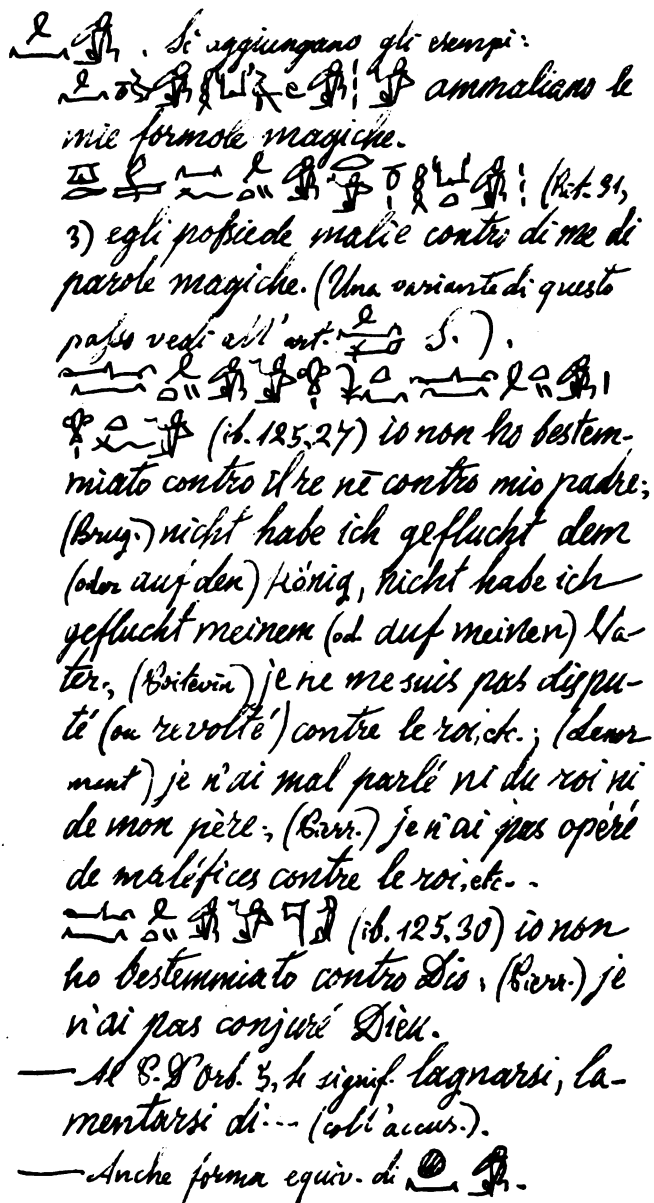 . Si aggiungano gli esempi:
ammaliano le
mie formole magiche.
(Rit. 31,
3) egli possiede malie contro di me di
parole magiche. (Una variante di questo
passo vedi all'art. S.).
(ib. 125,27) io non ho bestem-
miato contro il re nè contro mio padre;
(Brug.) nicht habe ich geflucht dem
(oder auf den) König, nicht habe ich
geflucht meinem (od. auf meinen) Va-
ter; (Poitevin) je ne me suis pas dispu-
té (ou revolté) contre le roi, etc.; (Lenor
mant) je n'ai mal parlé ni du roi ni
de mon père; (Pierr.) je n'ai pas opéré
de maléfices contre le roi, etc..
(ib. 125,30) io non
ho bestemmiato contro Dio; (Pierr.) je
n'ai pas conjuré Dieu.
— Al P. D'Orb. 5, le signif. lagnarsi, la-
mentarsi di... (coll'accus.).
— Anche forma equiv. di